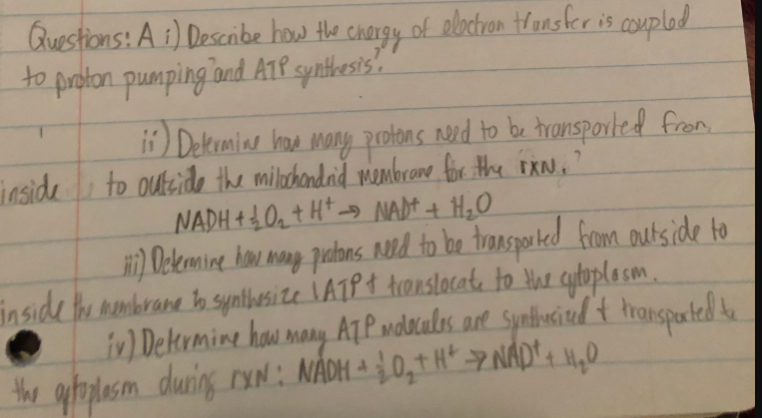 Questions: A i) Describe how the energy of electron transfer is coupled
to proton pumping and ATP synthesis?
ii) Determine how many protons need to be transported from
inside to outside the mitochondrid membrane for the rxn.?
NADH + ½O₂ + H⁺ → NAD⁺ + H₂O
iii) Determine how many protons need to be transported from outside to
inside the membrane to synthesize 1 ATP & translocate to the cytoplasm.
iv) Determine how many ATP molecules are synthesized & transported to
the cytoplasm during rxn: NADH + ½O₂ + H⁺ → NAD⁺ + H₂O